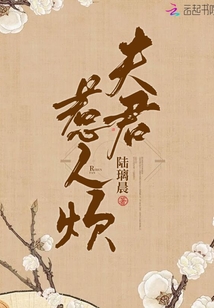 云起书院
夫君
惹人烦
陆璃晨
著